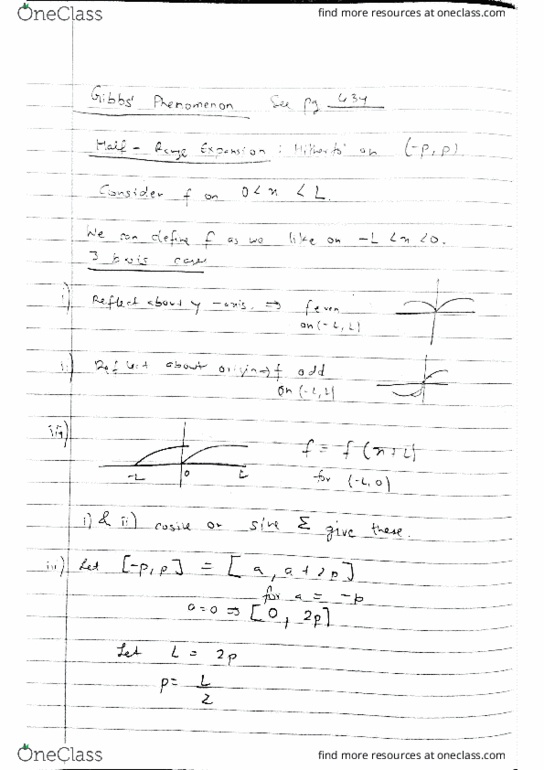 OneClass
find more resources at oneclass.com
Gibbs' Phenomenon See pg 434
Half - Range Expansion : Hitherto on (-p, p)
Consider f on 0 < x < L.
We can define f as we like on -L < x < 0.
3 basic cases
i) Reflect about y-axis. ⇒ f even
on (-L, L)
ii) Reflect about origin ⇒ f odd
on (-L, L)
iii)
-L 0 L
f = f(x+L)
for (-L, 0)
i) & ii) cosine or sine Σ give these.
iii) Let [-p, p] = [a, a+2p]
for a = -p
a=0 ⇒ [0, 2p]
Let L = 2p
p = L/2
OneClass
find more resources at oneclass.com